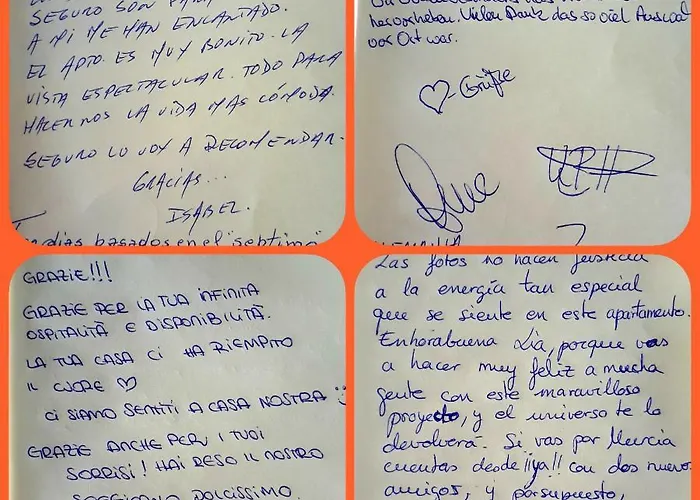 SEGURO SON PARA
A MI ME HAN ENCANTADO.
EL APTO. ES MUY BONITO. LA
VISTA ESPECTACULAR. TODO PARA
HACERNOS LA VIDA MAS CÓMODA.
SEGURO LO VOY A RECOMENDAR.
GRACIAS...
ISABEL.
dias basados en el "septimo"
hervorheben. Vielen Dank das so viel Auswahl
vor Ort war.
♡-Grüße
GRAZIE!!!
GRAZIE PER LA TUA INFINITA
OSPITALITÀ E DISPONIBILITÀ.
LA TUA CASA CI HA RIEMPITO
IL CUORE ♡
CI SIAMO SENTITI A CASA NOSTRA :)
GRAZIE ANCHE PER I TUOI
SORRISI! HAI RESO IL NOSTRO
SOGGIORNO DOLCISSIMO.
Las fotos no hacen justicia
a la energía tan especial
que se siente en este apartamento.
Enhorabuena Lia, porque vas
a hacer muy feliz a mucha
gente con este maravilloso
proyecto, y el universo te lo
devolverá. Si vas por Murcia
cuentas desde ¡¡ya!! con dos nuevos
amigos, y por supuesto,